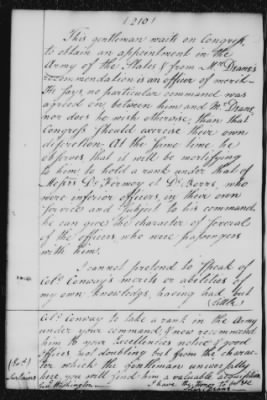 (210)
This gentleman waits on Congress
to obtain an appointment in the
Army of the States & from Mr Deane's
recommendation is an officer of merit
He says, no particular command was
agreed on, between him and Mr Deane
nor does he wish otherwise, than that
Congress should exercise their own
discretion. At the same time he
observes that it will be mortifying
to him to hold a rank under that of
Messrs De Fermoy et De Borre, who
were inferior officers in their own
Service and Subject to his command,
he can give the character of several
of the officers who were passengers
with him.
I cannot pretend to Speak of
Colo Conway's merits or abilities of
my own knowledge, having had but
Colo Conway to take a rank in the Army
under your command, & now recommend
him to your Excellencies notice & good
Offices not doubting but from the charac-
ter which the gentleman universally
bore you will find him a valuable acquisition
Genl Washington
I have the Honor to be &c